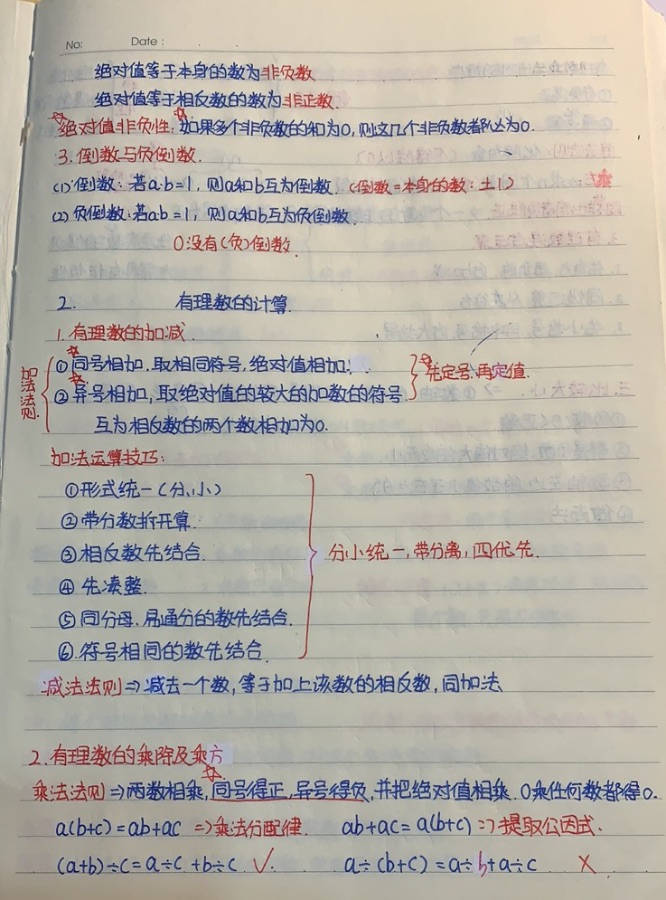 No:    Date :
绝对值等于本身的数为非负数
绝对值等于相反数的数为非正数
绝对值非负性:如果多个非负数的和为0,则这几个非负数都为0.
3.倒数与负倒数.
(1)倒数:若a·b=1,则a和b互为倒数.(倒数=本身的数:±1)
(2)负倒数:若a·b=1,则a和b互为负倒数.
0没有(负)倒数.
2. 有理数的计算.
1.有理数的加减.
加法法则
①同号相加,取相同符号,绝对值相加.
②异号相加,取绝对值的较大的加数的符号 先定号,再定值.
互为相反数的两个数相加为0.
加法运算技巧:
①形式统一(分、小)
②带分数拆开算.
③相反数先结合.
分小统一,带分离,四优先.
④先凑整.
⑤同分母、易通分的数先结合.
⑥符号相同的数先结合.
减法法则⇒减去一个数,等于加上该数的相反数,同加法
2.有理数的乘除及乘方
乘法法则⇒两数相乘,同号得正,异号得负,并把绝对值相乘.0乘任何数都得0.
a(b+c)=ab+ac ⇒乘法分配律. ab+ac=a(b+c)⇒提取公因式.
(a+b)÷c=a÷c+b÷c ✓. a÷(b+c)=a÷b+a÷c ×